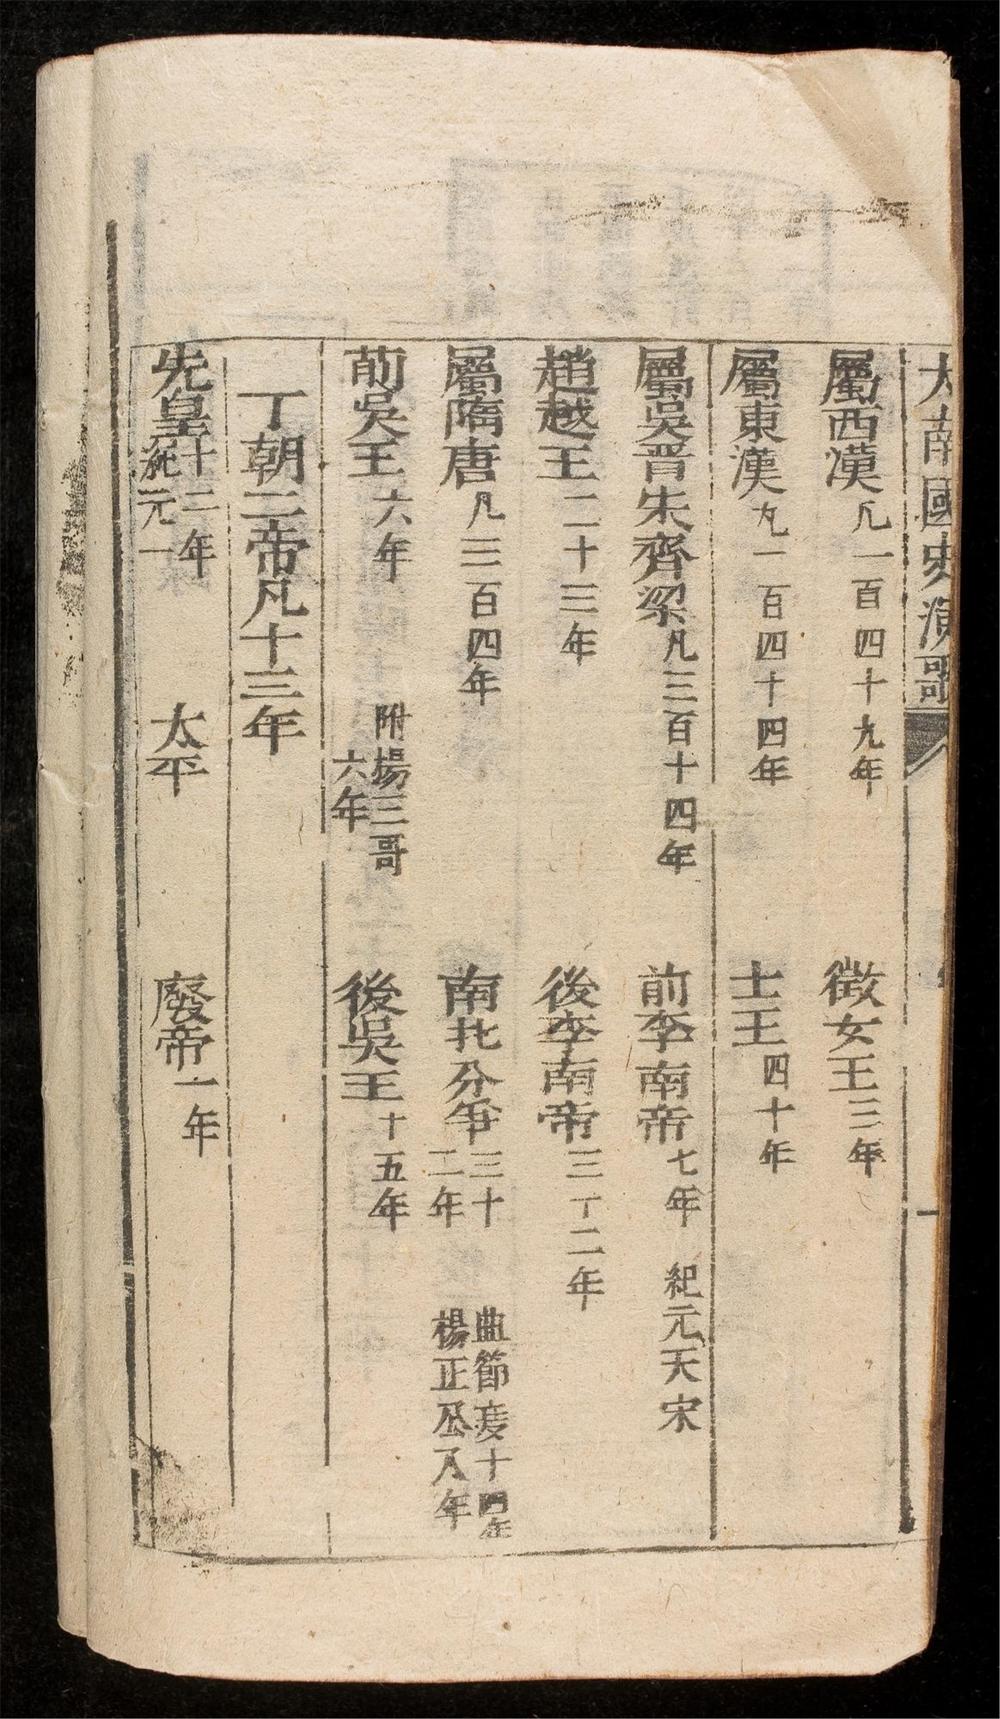 大南國史演歌
一
屬西漢凡一百四十九年 徵女王三年
屬東漢凡一百四十四年 士王四十年
屬吳晋宋齊梁凡三百十四年 前李南帝七年 紀元天宋
趙越王二十三年 後李南帝三十二年
屬隋唐凡三百四年 南北分爭三十二年 曲節度十四年楊正公八年
前吳王六年 附楊三哥六年 後吳王十五年
丁朝二帝凡十三年
先皇十二年紀元一 太平 廢帝一年